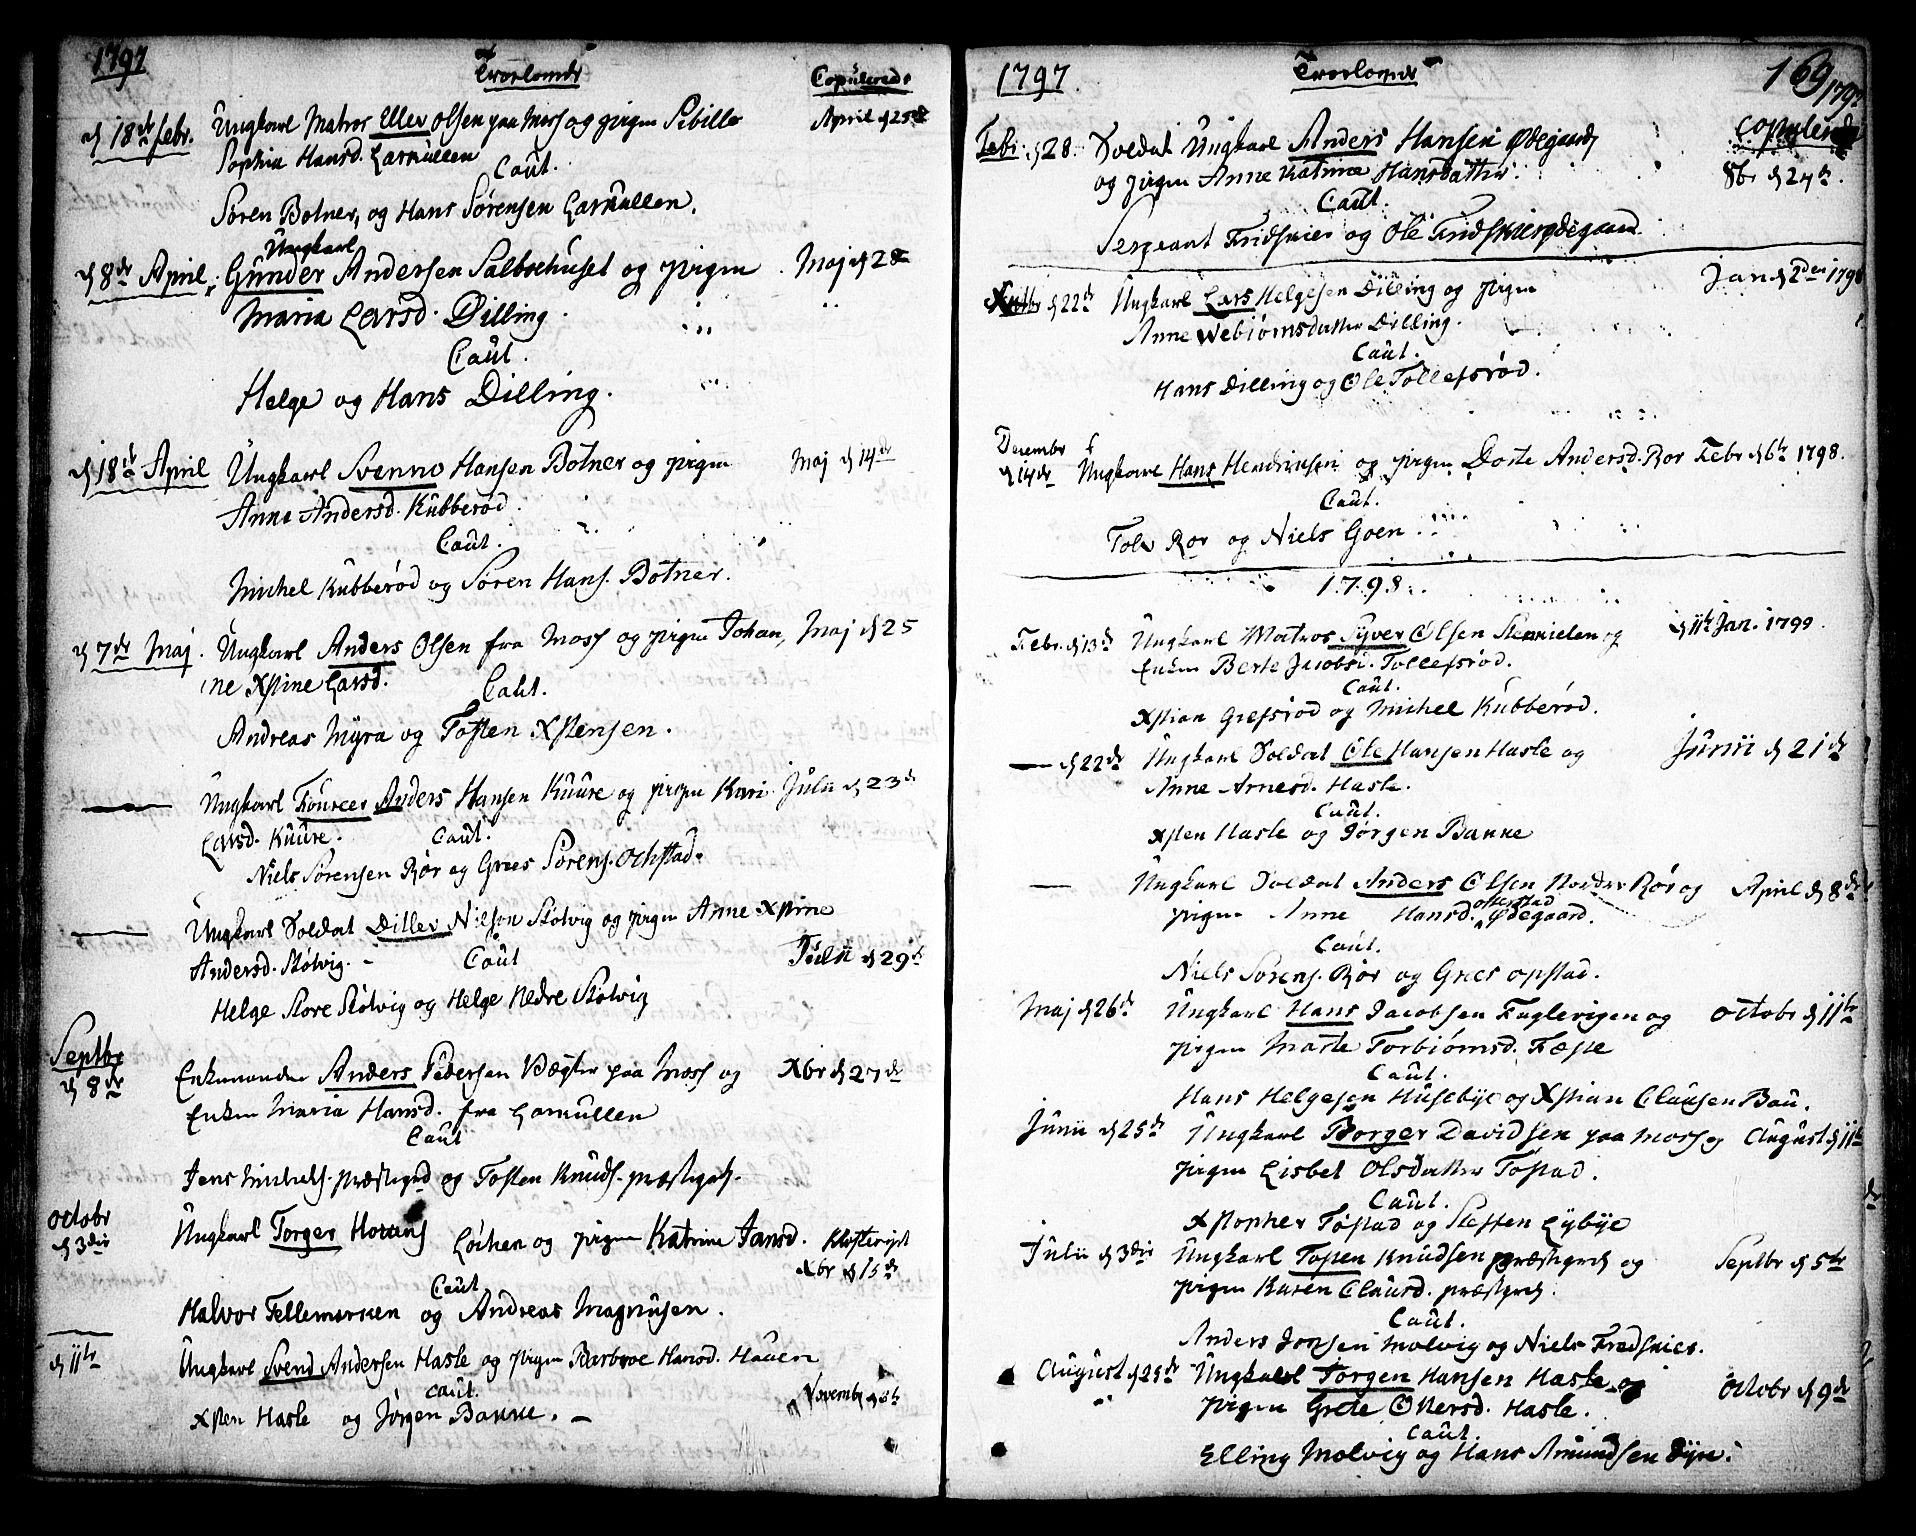 1797
Trolovede
Copulerede
d 18de Febr. Ungkarl Matros Ellev Olsen paa Moss og pigen Sibille April d 25de
Sophia Hansd. Larkullen
Caut.
Søren Botner, og Hans Sørensen Larkullen.
Ungkarl
d 8de April. Gunder Andersen Saltboehuset og pigen Maj d 28
Maria Larsd. Dilling.
Caut.
Helge og Hans Dilling.
d 18de April Ungkarl Svenno Hansen Botner og pigen Maj d 14de
Anne Andersd. Kubberød.
Caut.
Michel Kubberød og Søren Hans. Botner.
d 7de Maj. Ungkarl Anders Olsen fra Moss og pigen Johan, Maj d 25
ne Xstine Larsd.
Caut.
Andreas Myra og Tosten Xstensen.
— Ungkarl Anders Hansen Kuure og pigen Kari Julii d 23de
Larsd. Kuure. Caut.
Niels Sørensen Rør og Grees Sørens. Ochstad.
— Ungkarl Soldat Ditlev Nilson Støtvig og pigen Anne Xstine
Andersd. Støtvig. - Caut Julii d 29de
Helge Store Støtvig og Helge Nedre Støtvig
Septbr
d 8de Enkemanden Anders Pedersen Vægter paa Moss og Xbr d 27de
Enken Maria Hansd. fra Larkullen
Caut
Jens Michels. præstegrd og Tosten Knuds. præstegrd.
Octobr
d 3die Ungkarl Torger Løchen og pigen Katrine Jansd.
Xbr d 15de
Caut
Halvor Tellemarken og Andreas Magnusen.
—
d 11te Ungkarl Svend Andersen Hasle og pigen Barbroe Hansd. Hauen
Caut. Novembr d 8de
Xsten Hasle og Jørgen Bakke. —
1797.
Trolovede
169
1797
Copulerede
Febr. d 28. Soldat Ungkarl Anders Hansen Ødegaard
og pigen Anne Katrine Hansdatter. 8br d 24de.
Caut.
Sergeant Fridskier og Ole Fridskierødegaard.
d 22de Ungkarl Lars Helgesen Dilling og pigen Jan d 2den 1798
Anne Webiørnsdatter Dilling.
Caut.
Hans Dilling og Ole Tollefsrød.
Decembr
d 14de Ungkarl Hans Hendriksen og pigen Dorte Andersd. Rør Febr d 6te 1798.
Caut.
Tolv Rør og Niels Goen.
1798.
Febr. d 13de Ungkarl Matros Syver Olsen og d 11te Jan. 1799.
Enken Berte Jacobsd. Tollefsrød.
Caut.
Xstian Grefsrød og Michel Kubberød.
— d 22de Ungkarl Soldat Ole Hansen Hasle og Junii d 21de
Anne Arnesd. Hasle.
Caut.
Xsten Hasle og Jørgen Bakke
— Ungkarl Soldat Anders Olsen Nordre Rør og April d 8de
pigen Anne Hansd. Ødegaard.
Caut.
Niels Sørens. Rør og Grees opstad.
Maj d 26de Ungkarl Hans Jacobsen Fuglevigen og Octobr d 11te
pigen Marte Torbiørnsd. Fæste
Caut.
Hans Helgesen Husebye og Xstian Clausen Bau.
Junii d 25de Ungkarl Borger Davidsen paa Moss og August d 11te
pigen Lisbet Olsdatter Tostad.
Caut.
Xstopher Tostad og Steffen Lybye
Julii d 3die Ungkarl Tosten Knudsen præstegrd og Septbr d 5te
pigen Karen Clausd. præstegrd.
Caut.
Anders Jonsen Molvig og Niels Fredskier.
August d 25de Ungkarl Torgen Hansen Hasle og Octobr d 9de
pigen Grete Ottersd. Hasle.
Caut.
Elling Molvig og Hans Amundsen Dyre.